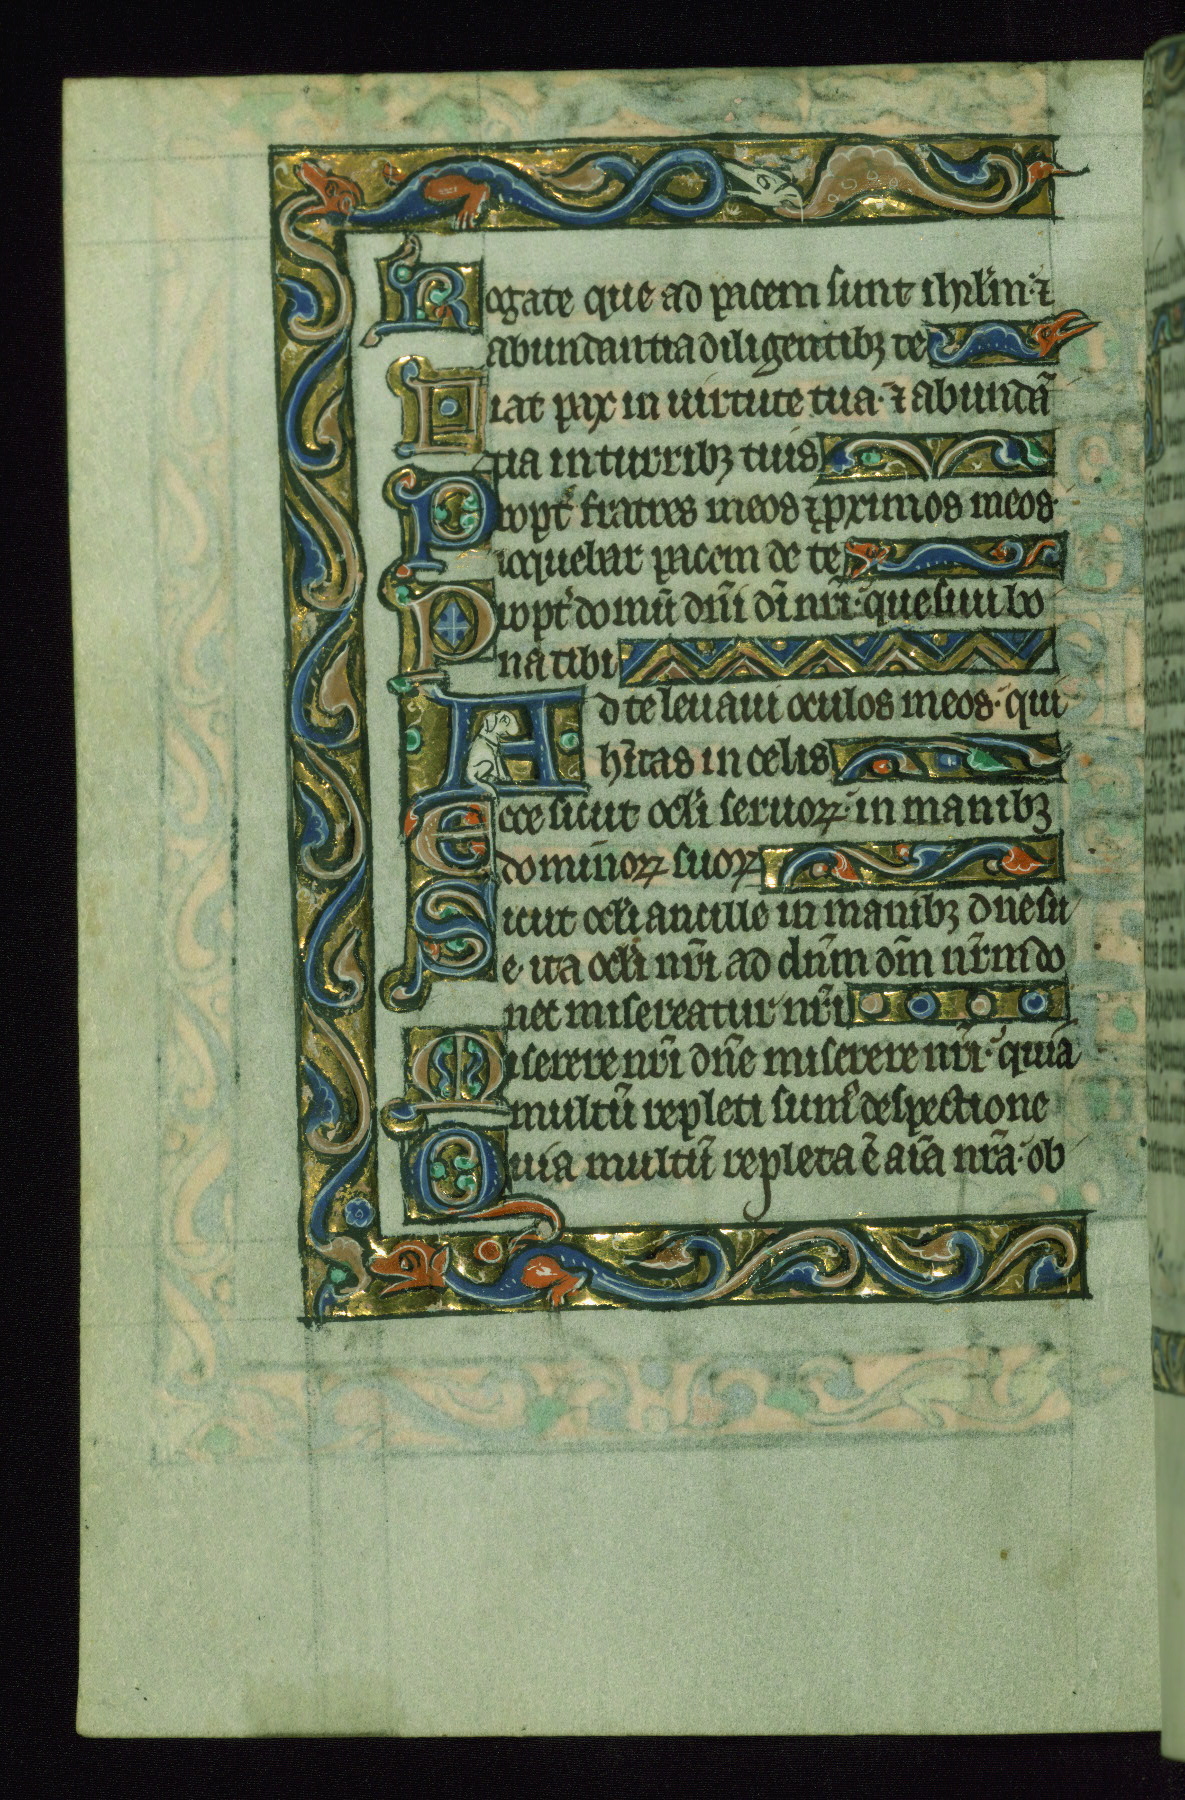 Rogate que ad pacem sunt ihrl̄m· ⁊
abundantia diligentibꝫ te
Fiat pax in uirtute tua· ⁊ abundā
tia in turribꝫ tuis
Propt̉ fratres meos ⁊ pximos meos·
loquebar pacem de te
Propt̉ domū dn̄i dī nr̄i· quesiui bo
na tibi
Ad te leuaui oculos meos· qui
hītas in celis
Ecce sicut ocl̄i seruoꝝ· in manibꝫ
dominoꝝ suoꝝ
Sicut ocl̄i ancille in manibꝫ dne su
e· ita ocl̄i nr̄i ad dn̄m dm̄ nr̄m do
nec misereatur nr̄i
Miserere nr̄i dn̄e miserere nr̄i· quia
multū repleti sumꝰ despectione
Quia multū repleta ē aīa nr̄a· ob